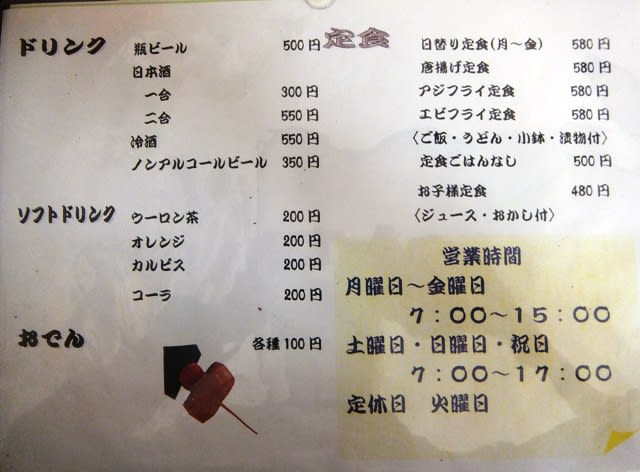 ドリンク 瓶ビール 500円
日本酒
一台 300円
二台 550円
冷酒 550円
ノンアルコールビール 350円
ソフトドリンク ウーロン茶 200円
オレンジ 200円
カルピス 200円
コーラ 200円
おでん 各種100円
定食 日替り定食(月～金) 580円
唐揚げ定食 580円
アジフライ定食 580円
エビフライ定食 580円
〈ご飯・うどん・小鉢・漬物付〉
定食ごはんなし 500円
お子様定食 480円
〈ジュース・おかし付〉
営業時間
月曜日～金曜日
7：00～15：00
土曜日・日曜日・祝日
7：00～17：00
定休日 火曜日